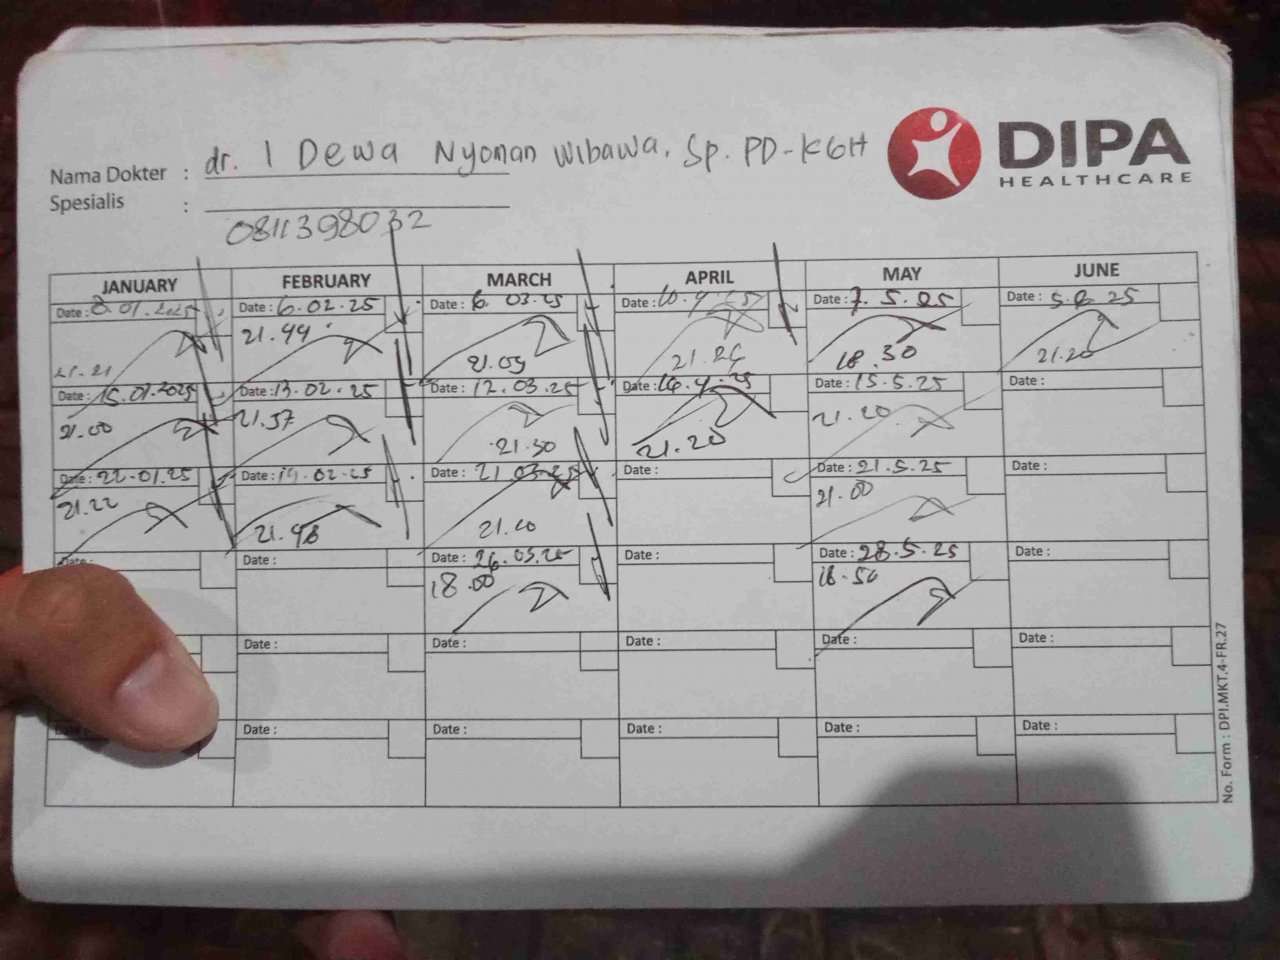 DIPA
HEALTHCARE
Nama Dokter : dr. I Dewa Nyoman Wibawa, Sp. PD-KGH
Spesialis :
0811398032
JANUARY FEBRUARY MARCH APRIL MAY JUNE
Date : 8.01.2025 Date : 6.02.25 Date : 6.03.25 Date : 10.4.25 Date : 7.5.25 Date : 5.6.25
21.21 21.44 21.09 21.24 18.30 21.20
Date : 15.01.2025 Date : 13.02.25 Date : 12.03.25 Date : 16.4.25 Date : 15.5.25 Date :
21.00 21.37 21.30 21.20 21.20
Date : 22.01.25 Date : 19.02.25 Date : 21.03.25 Date : Date : 21.5.25 Date :
21.22 21.48 21.10 21.00
Date : Date : Date : 26.03.25 Date : Date : 28.5.25 Date :
18.00 18.50
Date : Date : Date : Date : Date :
Date : Date : Date : Date : Date :
No. Form : DPI.MKT.4-FR.27